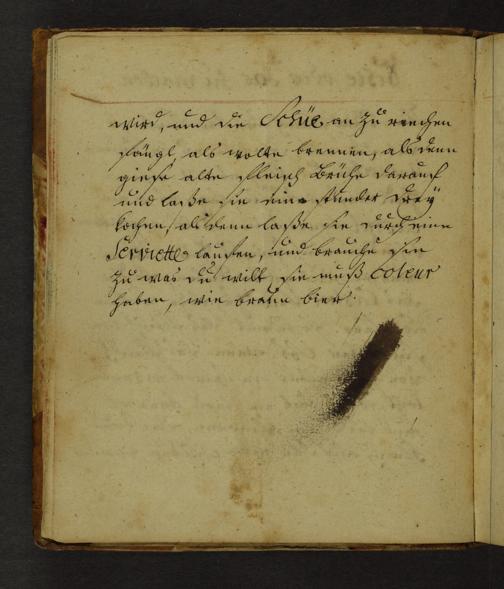 wird, und die Schüe an zu riechen
fängt, als wolte brennen, als denn
giese alte fleisch Brühe darauf
und laße sie eine stunde drey
kochen, als denn laße sie durch eine
Serviette lauffen, und brauche sie
zu was du wilt, sie muß Coleur
haben, wie braun bier.